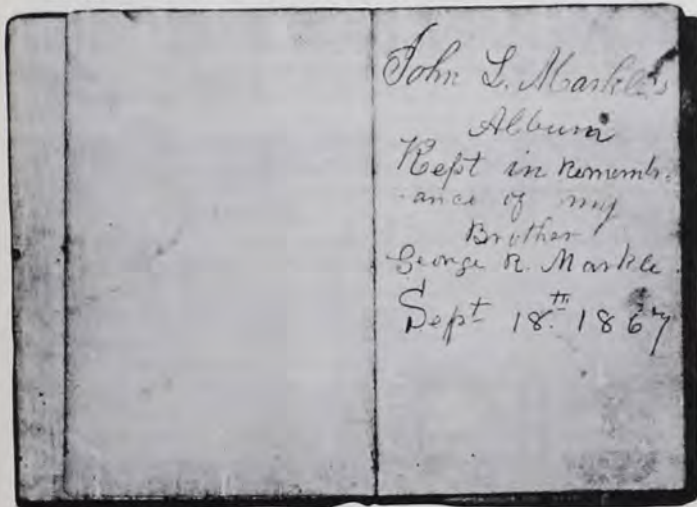 John L. Markle's
Album
Kept in Rememb-
-ance of my
Brother
George R. Markle.
Sept 18th 1867